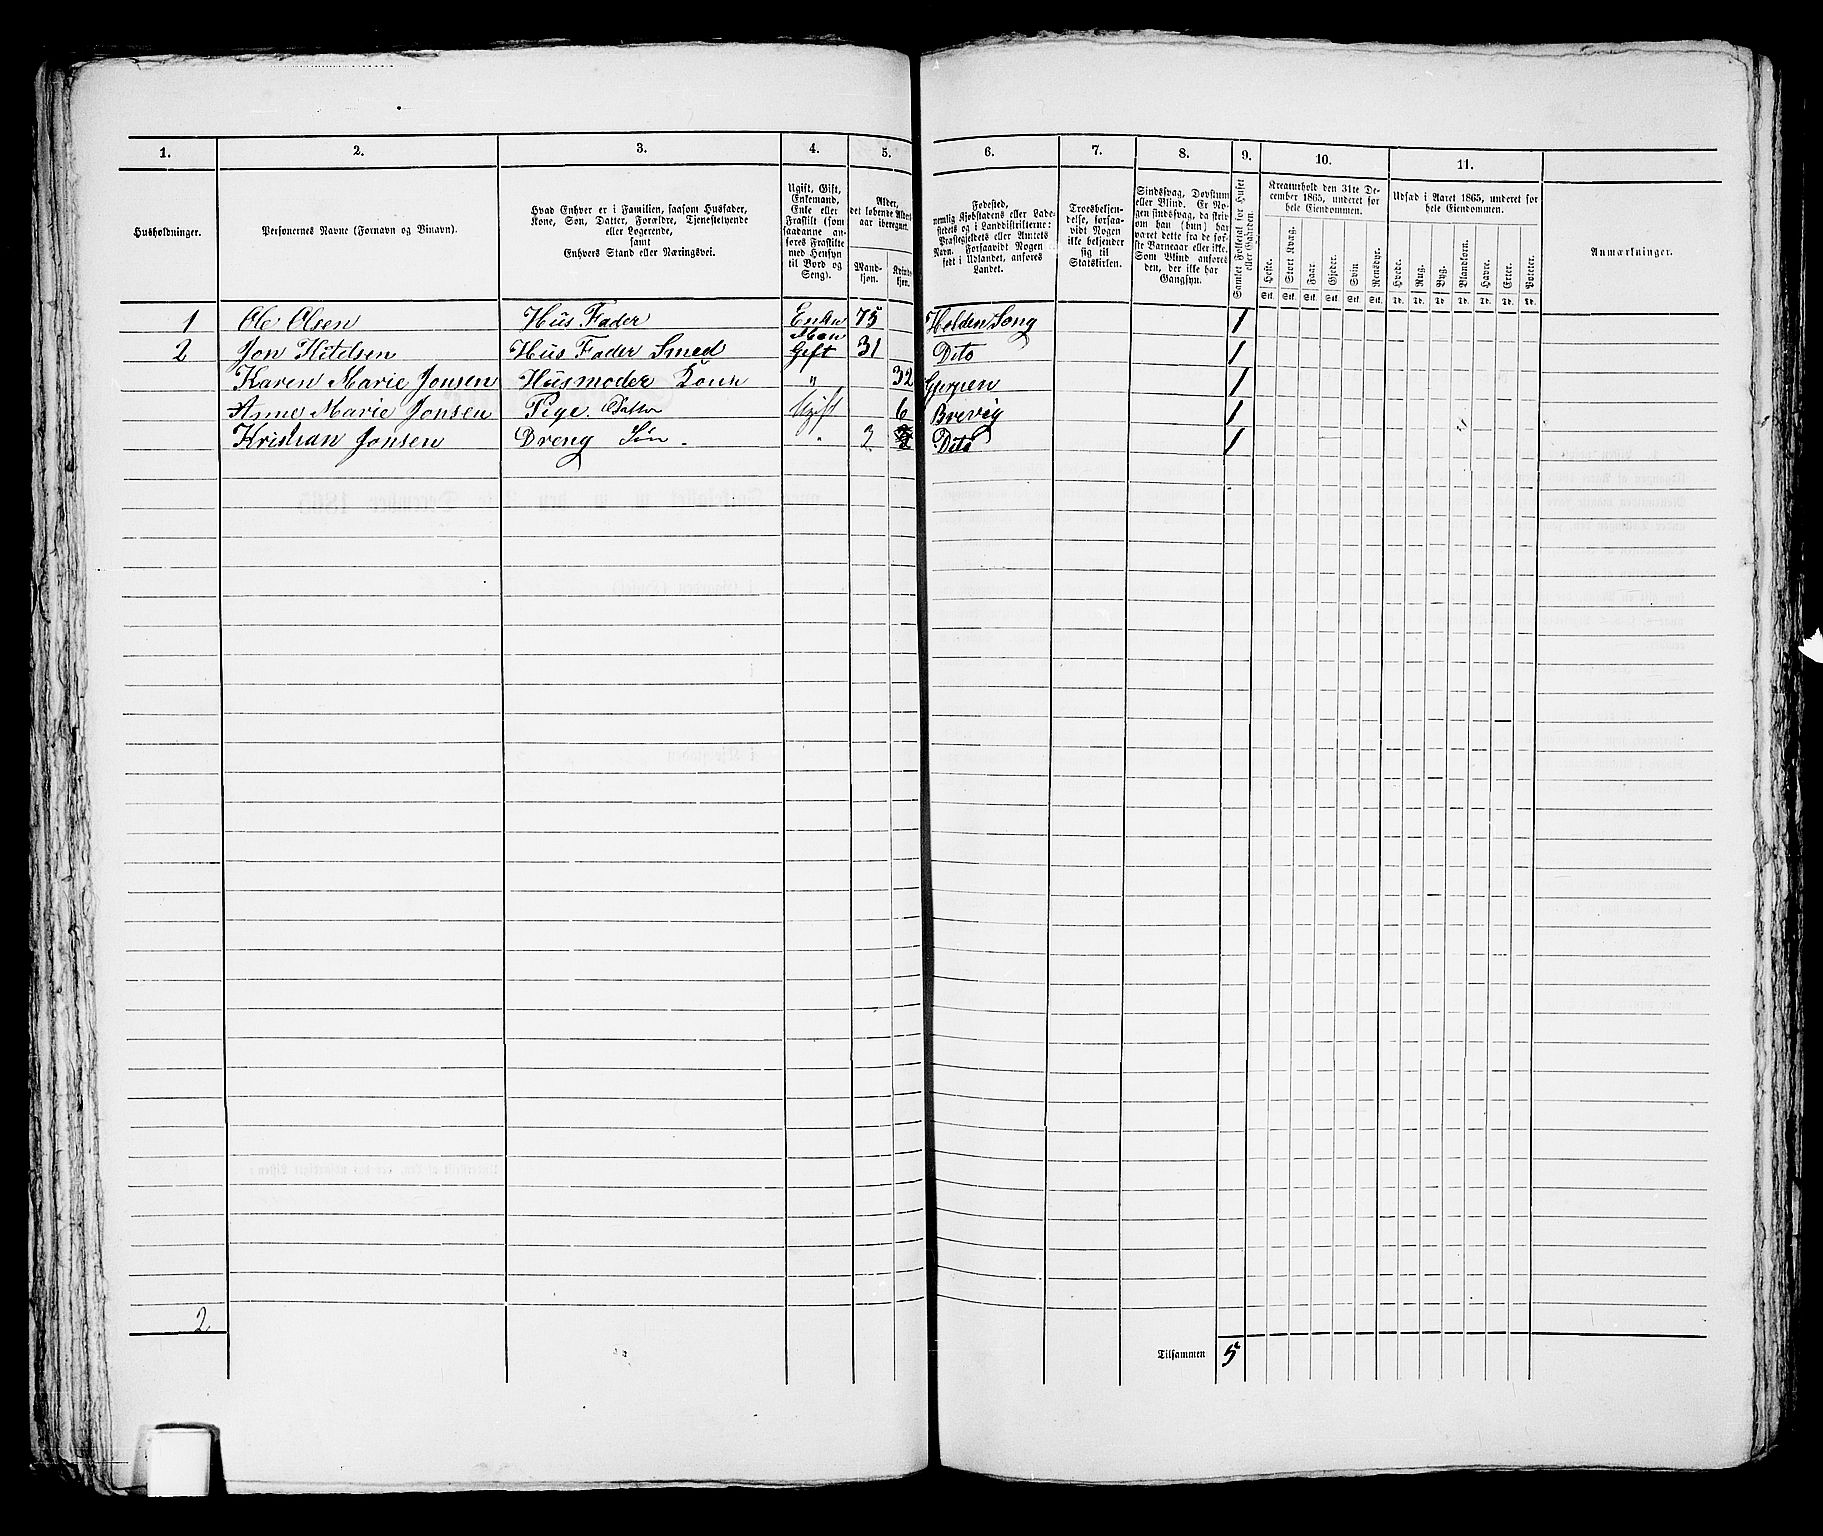 1. 2. 3. 4. 5. 6. 7. 8. 9. 10. 11.
Husholdninger.
Personernes Navne (Fornavn og Binavn).
Hvad Enhver er i Familien, saasom Husfader,
Kone, Søn, Datter, Forældre, Tjenestetyende
eller Logerende,
samt
Enhvers Stand eller Næringsvei.
Ugift, Gift,
Enkemand,
Enke eller
Fraskilt (som
saadanne an-
føres Fraskilte
med Hensyn
til Bord og
Seng).
Alder,
det løbende Alders-
aar iberegnet.
Mand-
kjøn.
Kvinde-
kjøn.
Fødested,
nemlig Kjøbstadens eller Lade-
stedets og i Landdistrikterne:
Præstegjeldets eller Amtets
Navn. Forsaavidt Nogen er
født i Udlandet, anføres
Landet.
Troesbekjen-
delse, forsaa-
vidt Nogen
ikke bekjender
sig til
Statskirken.
Sindssvag, Døvstum
eller Blind. Er No-
gen sindssvag, da skri-
ves om han (hun) har
været dette fra de før-
ste Barneaar eller ikke.
Som Blind anføres
den, der ikke har
Gangsyn.
Samlet Folketal for Huset
eller Gaarden.
Kreaturhold den 31te De-
cember 1865, underet for
hele Eiendommen.
Heste. Stort Kvæg. Faar. Gjeder. Svin. Rensdyr.
Stk. Stk. Stk. Stk. Stk. Stk.
Udsæd i Aaret 1865, underet for
hele Eiendommen.
Hvede. Rug. Byg. Blandkorn. Havre. Erter. Poteter.
Td. Td. Td. Td. Td. Td. Td.
Anmærkninger.
1 Ole Olsen Hüs Fader Enke Man 75 Holden Song 1
2 Jon Kitelsen Hüs Fader Smed Gift 31 Dito 1
Karen Marie Jonsen Hüsmoder Kone " 32 Gjerpen 1
Anne Marie Jonsen Pige. Datter Ugift 6 Brevig 1
Kristian Jonsen Dreng Sön. " 2 Dito 1
2
Tilsammen 5